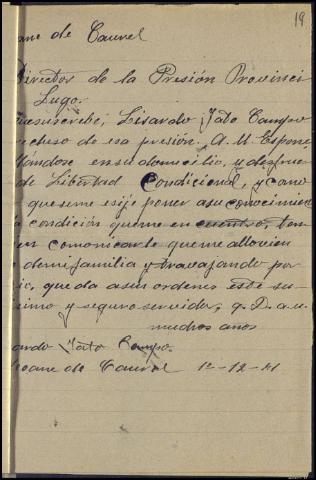 19
ane de Caurel
Director de la Presión Provinci
Lugo.
quesuscrebe; Lisardo Jato Campo
recluso de esa presión. A. U. Espone
llándose ensudomicilio, y desfru
de Libertad Condicional, y como
queseme esije poner asu conocimien
condición queme encuentro, ten
en comonicarle queme allovien
demifamilia y travajando por
queda asus ordenes este su
simo y seguro servidor, q. D. a. u.
muchos años
ardo Jato Campo.
Seoane de Caurel 1º-12-41